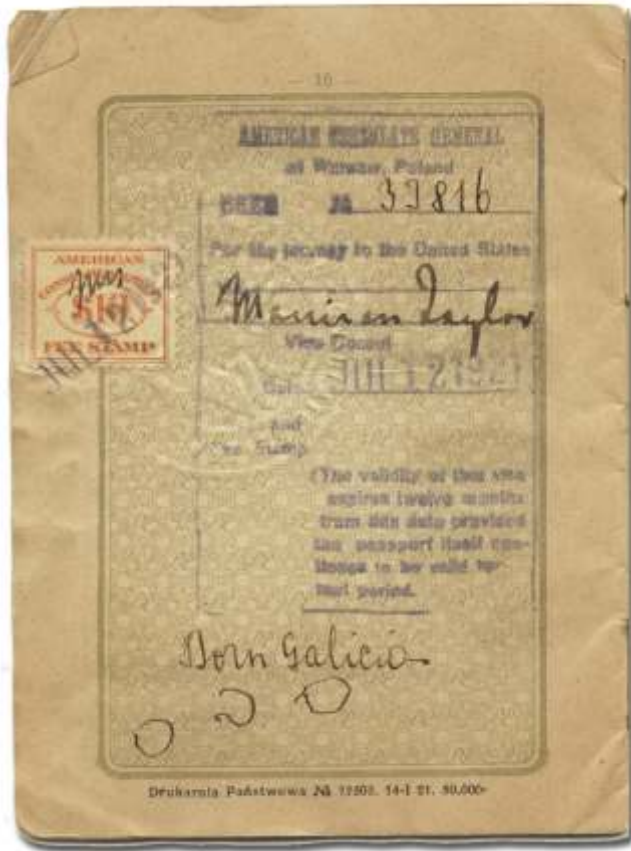 — 10 —
AMERICAN CONSULATE GENERAL
at Warsaw, Poland
SEEN № 39816
For the journey to the United States
Taylor
Vice Consul
Date JUL 12 192
and
Fee Stamp
(The validity of this visa
expires twelve months
from this date provided
the passport itself con-
tinues to be valid for
that period.
AMERICAN
FEE STAMP
Born Galicia
Drukarnia Państwowa № 14-I 21. 50.000